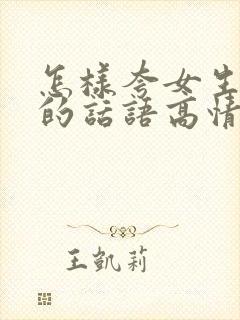 怎樣夸女生
的話語高情
王凱莉